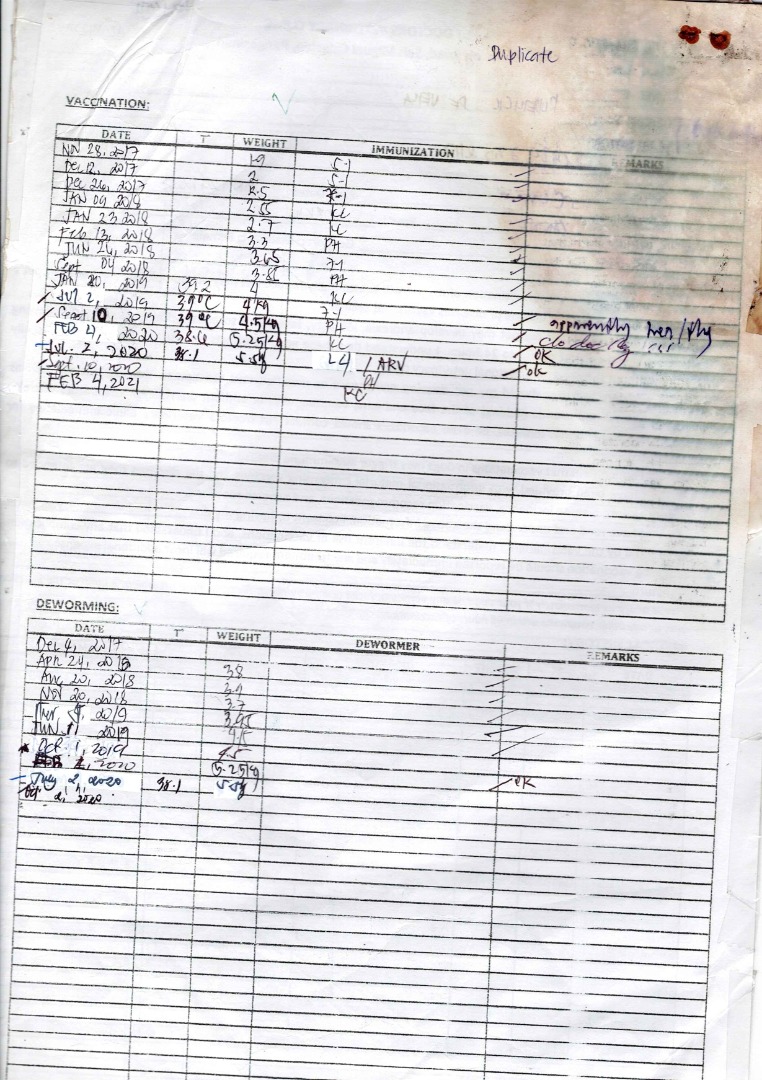 Duplicate
VACCINATION:
DATE T° WEIGHT IMMUNIZATION REMARKS
Nov 28, 2017 1.9 5-1
Dec 12, 2017 2 5-1
Dec 26, 2017 2.5
JAN 09 2018 2.55 KC
JAN 23 2018 2.7 KC
Feb 13, 2018 3.3 PH
JUN 26, 2018 3.65 7-1
Sept 04 2018 3.85 PH
JAN 2019 39.2 4 KC
Jul 2, 2019 39°C 4 kg 7-1
Sept 10, 2019 39°C 4.5 kg PH apparently
FEB 4, 2020 38.6 5.25 kg KC
Jul. 2, 2020 38.1 5.5 kg / ARV OK
Sept. 10, 2020 OK
FEB 4, 2021 KC
DEWORMING:
DATE T° WEIGHT DEWORMER REMARKS
Dec 4, 2017
Apr 24, 2018 3.8
Aug 20, 2018 3.9
Nov 20, 2018 3.7
2019 3.95
JUN 11 2019
Oct 1, 2019 4.5
2020 5.25 kg
July 2, 2020 38.1 5.5 kg OK
2020